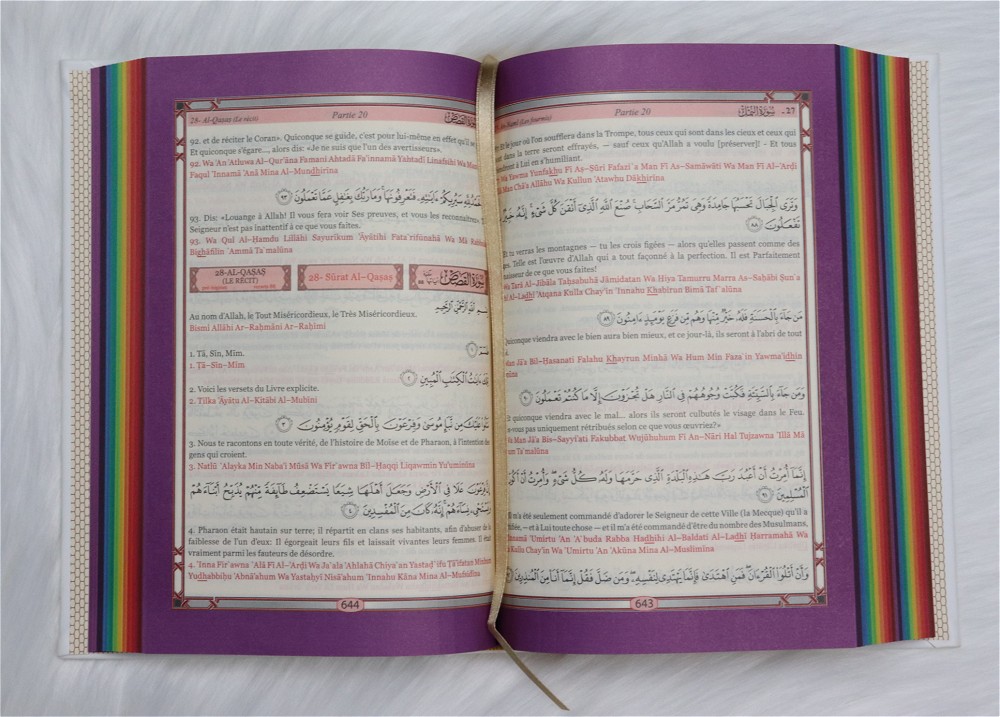 سُورَةُ النَّمْلِ -27
An-Naml (Les fourmis)
Partie 20
Et le jour où l'on soufflera dans la Trompe, tous ceux qui sont dans les cieux et ceux qui
dans la terre seront effrayés, — sauf ceux qu'Allah a voulu [préserver]! - Et tous
viendront à Lui en s'humiliant.
Wa Yawma Yunfakhu Fī Aş-Şūri Fafazi`a Man Fī As-Samāwāti Wa Man Fī Al-'Arđi
Man Chā'a Allāhu Wa Kullun 'Atawhu Dākhirīna
وَتَرَى الْجِبَالَ تَحْسَبُهَا جَامِدَةً وَهِيَ تَمُرُّ مَرَّ السَّحَابِ صُنْعَ اللَّهِ الَّذِي أَتْقَنَ كُلَّ شَيْءٍ إِنَّهُ خَبِيرٌ
تَفْعَلُونَ ٨٨
Et tu verras les montagnes — tu les crois figées — alors qu'elles passent comme des
Telle est l'œuvre d'Allah qui a tout façonné à la perfection. Il est Parfaitement
de ce que vous faites!
Wa Tará Al-Jibāla Taĥsabuhā Jāmidatan Wa Hiya Tamurru Marra As-Saĥābi Şun`a
Al-Ladhī 'Atqana Kulla Chay'in 'Innahu Khabīrun Bimā Taf`alūna
مَن جَاءَ بِالْحَسَنَةِ فَلَهُ خَيْرٌ مِّنْهَا وَهُم مِّن فَزَعٍ يَوْمَئِذٍ ءَامِنُونَ ٨٩
Quiconque viendra avec le bien aura bien mieux, et ce jour-là, ils seront à l'abri de tout
Man Jā'a Bil-Ĥasanati Falahu Khayrun Minhā Wa Hum Min Faza`in Yawma'idhin
وَمَن جَاءَ بِالسَّيِّئَةِ فَكُبَّتْ وُجُوهُهُمْ فِي النَّارِ هَلْ تُجْزَوْنَ إِلَّا مَا كُنتُمْ تَعْمَلُونَ ٩٠
Et quiconque viendra avec le mal... alors ils seront culbutés le visage dans le Feu.
vous uniquement rétribués selon ce que vous œuvriez?»
Wa Man Jā'a Bis-Sayyi'ati Fakubbat Wujūhuhum Fī An-Nāri Hal Tujzawna 'Illā Mā
Ta`malūna
إِنَّمَا أُمِرْتُ أَنْ أَعْبُدَ رَبَّ هَذِهِ الْبَلْدَةِ الَّذِي حَرَّمَهَا وَلَهُ كُلُّ شَيْءٍ وَأُمِرْتُ أَنْ أَكُونَ
الْمُسْلِمِينَ ٩١
Il m'a été seulement commandé d'adorer le Seigneur de cette Ville (la Mecque) qu'Il a
— et à Lui toute chose — et il m'a été commandé d'être du nombre des Musulmans,
'Innamā 'Umirtu 'An 'A`buda Rabba Hadhihi Al-Baldati Al-Ladhī Ĥarramahā Wa
Kullu Chay'in Wa 'Umirtu 'An 'Akūna Mina Al-Muslimīna
وَأَنْ أَتْلُوَا الْقُرْءَانَ فَمَنِ اهْتَدَى فَإِنَّمَا يَهْتَدِي لِنَفْسِهِ وَمَن ضَلَّ فَقُلْ إِنَّمَا أَنَا مِنَ الْمُنذِرِينَ
643
28- Al-Qaşaş (Le récit)
Partie 20
سُورَةُ القَصَصِ
92. et de réciter le Coran». Quiconque se guide, c'est pour lui-même en effet qu'il se
Et quiconque s'égare..., alors dis: «Je ne suis que l'un des avertisseurs».
92. Wa 'An 'Atluwa Al-Qur'āna Famani Ahtadá Fa'innamā Yahtadī Linafsihi Wa Man
Faqul 'Innamā 'Anā Mina Al-Mundhirīna
الْحَمْدُ لِلَّهِ سَيُرِيكُمْ ءَايَاتِهِ فَتَعْرِفُونَهَا وَمَا رَبُّكَ بِغَافِلٍ عَمَّا تَعْمَلُونَ ٩٣
93. Dis: «Louange à Allah! Il vous fera voir Ses preuves, et vous les reconnaîtrez».
Seigneur n'est pas inattentif à ce que vous faites.
93. Wa Qul Al-Ĥamdu Lillāhi Sayurīkum 'Āyātihi Fata`rifūnahā Wa Mā Rabbuka
Bighāfilin `Ammā Ta`malūna
28-AL-QAŞAŞ
(LE RÉCIT)
28- Sūrat Al-Qaşaş
سُورَةُ القَصَصِ
بِسْمِ اللَّهِ الرَّحْمَنِ الرَّحِيمِ
Au nom d'Allah, le Tout Miséricordieux, le Très Miséricordieux.
Bismi Allāhi Ar-Raĥmāni Ar-Raĥīmi
طسم ١
1. Tā, Sīn, Mīm.
1. Ţā-Sīn-Mīm
تِلْكَ ءَايَاتُ الْكِتَابِ الْمُبِينِ ٢
2. Voici les versets du Livre explicite.
2. Tilka 'Āyātu Al-Kitābi Al-Mubīni
نَتْلُوا عَلَيْكَ مِن نَّبَإِ مُوسَى وَفِرْعَوْنَ بِالْحَقِّ لِقَوْمٍ يُؤْمِنُونَ ٣
3. Nous te racontons en toute vérité, de l'histoire de Moïse et de Pharaon, à l'intention des
gens qui croient.
3. Natlū `Alayka Min Naba'i Mūsá Wa Fir`awna Bil-Ĥaqqi Liqawmin Yu'uminūna
فِرْعَوْنَ عَلَا فِي الْأَرْضِ وَجَعَلَ أَهْلَهَا شِيَعًا يَسْتَضْعِفُ طَائِفَةً مِّنْهُمْ يُذَبِّحُ أَبْنَاءَهُمْ
وَيَسْتَحْيِي نِسَاءَهُمْ إِنَّهُ كَانَ مِنَ الْمُفْسِدِينَ ٤
4. Pharaon était hautain sur terre; il répartit en clans ses habitants, afin d'abuser de la
faiblesse de l'un d'eux: Il égorgeait leurs fils et laissait vivantes leurs femmes. Il était
vraiment parmi les fauteurs de désordre.
4. 'Inna Fir`awna `Alā Fī Al-'Arđi Wa Ja`ala 'Ahlahā Chiya`an Yastađ`ifu Ţā'ifatan Minhum
Yudhabbiĥu 'Abnā'ahum Wa Yastaĥyī Nisā'ahum 'Innahu Kāna Mina Al-Mufsidīna
644